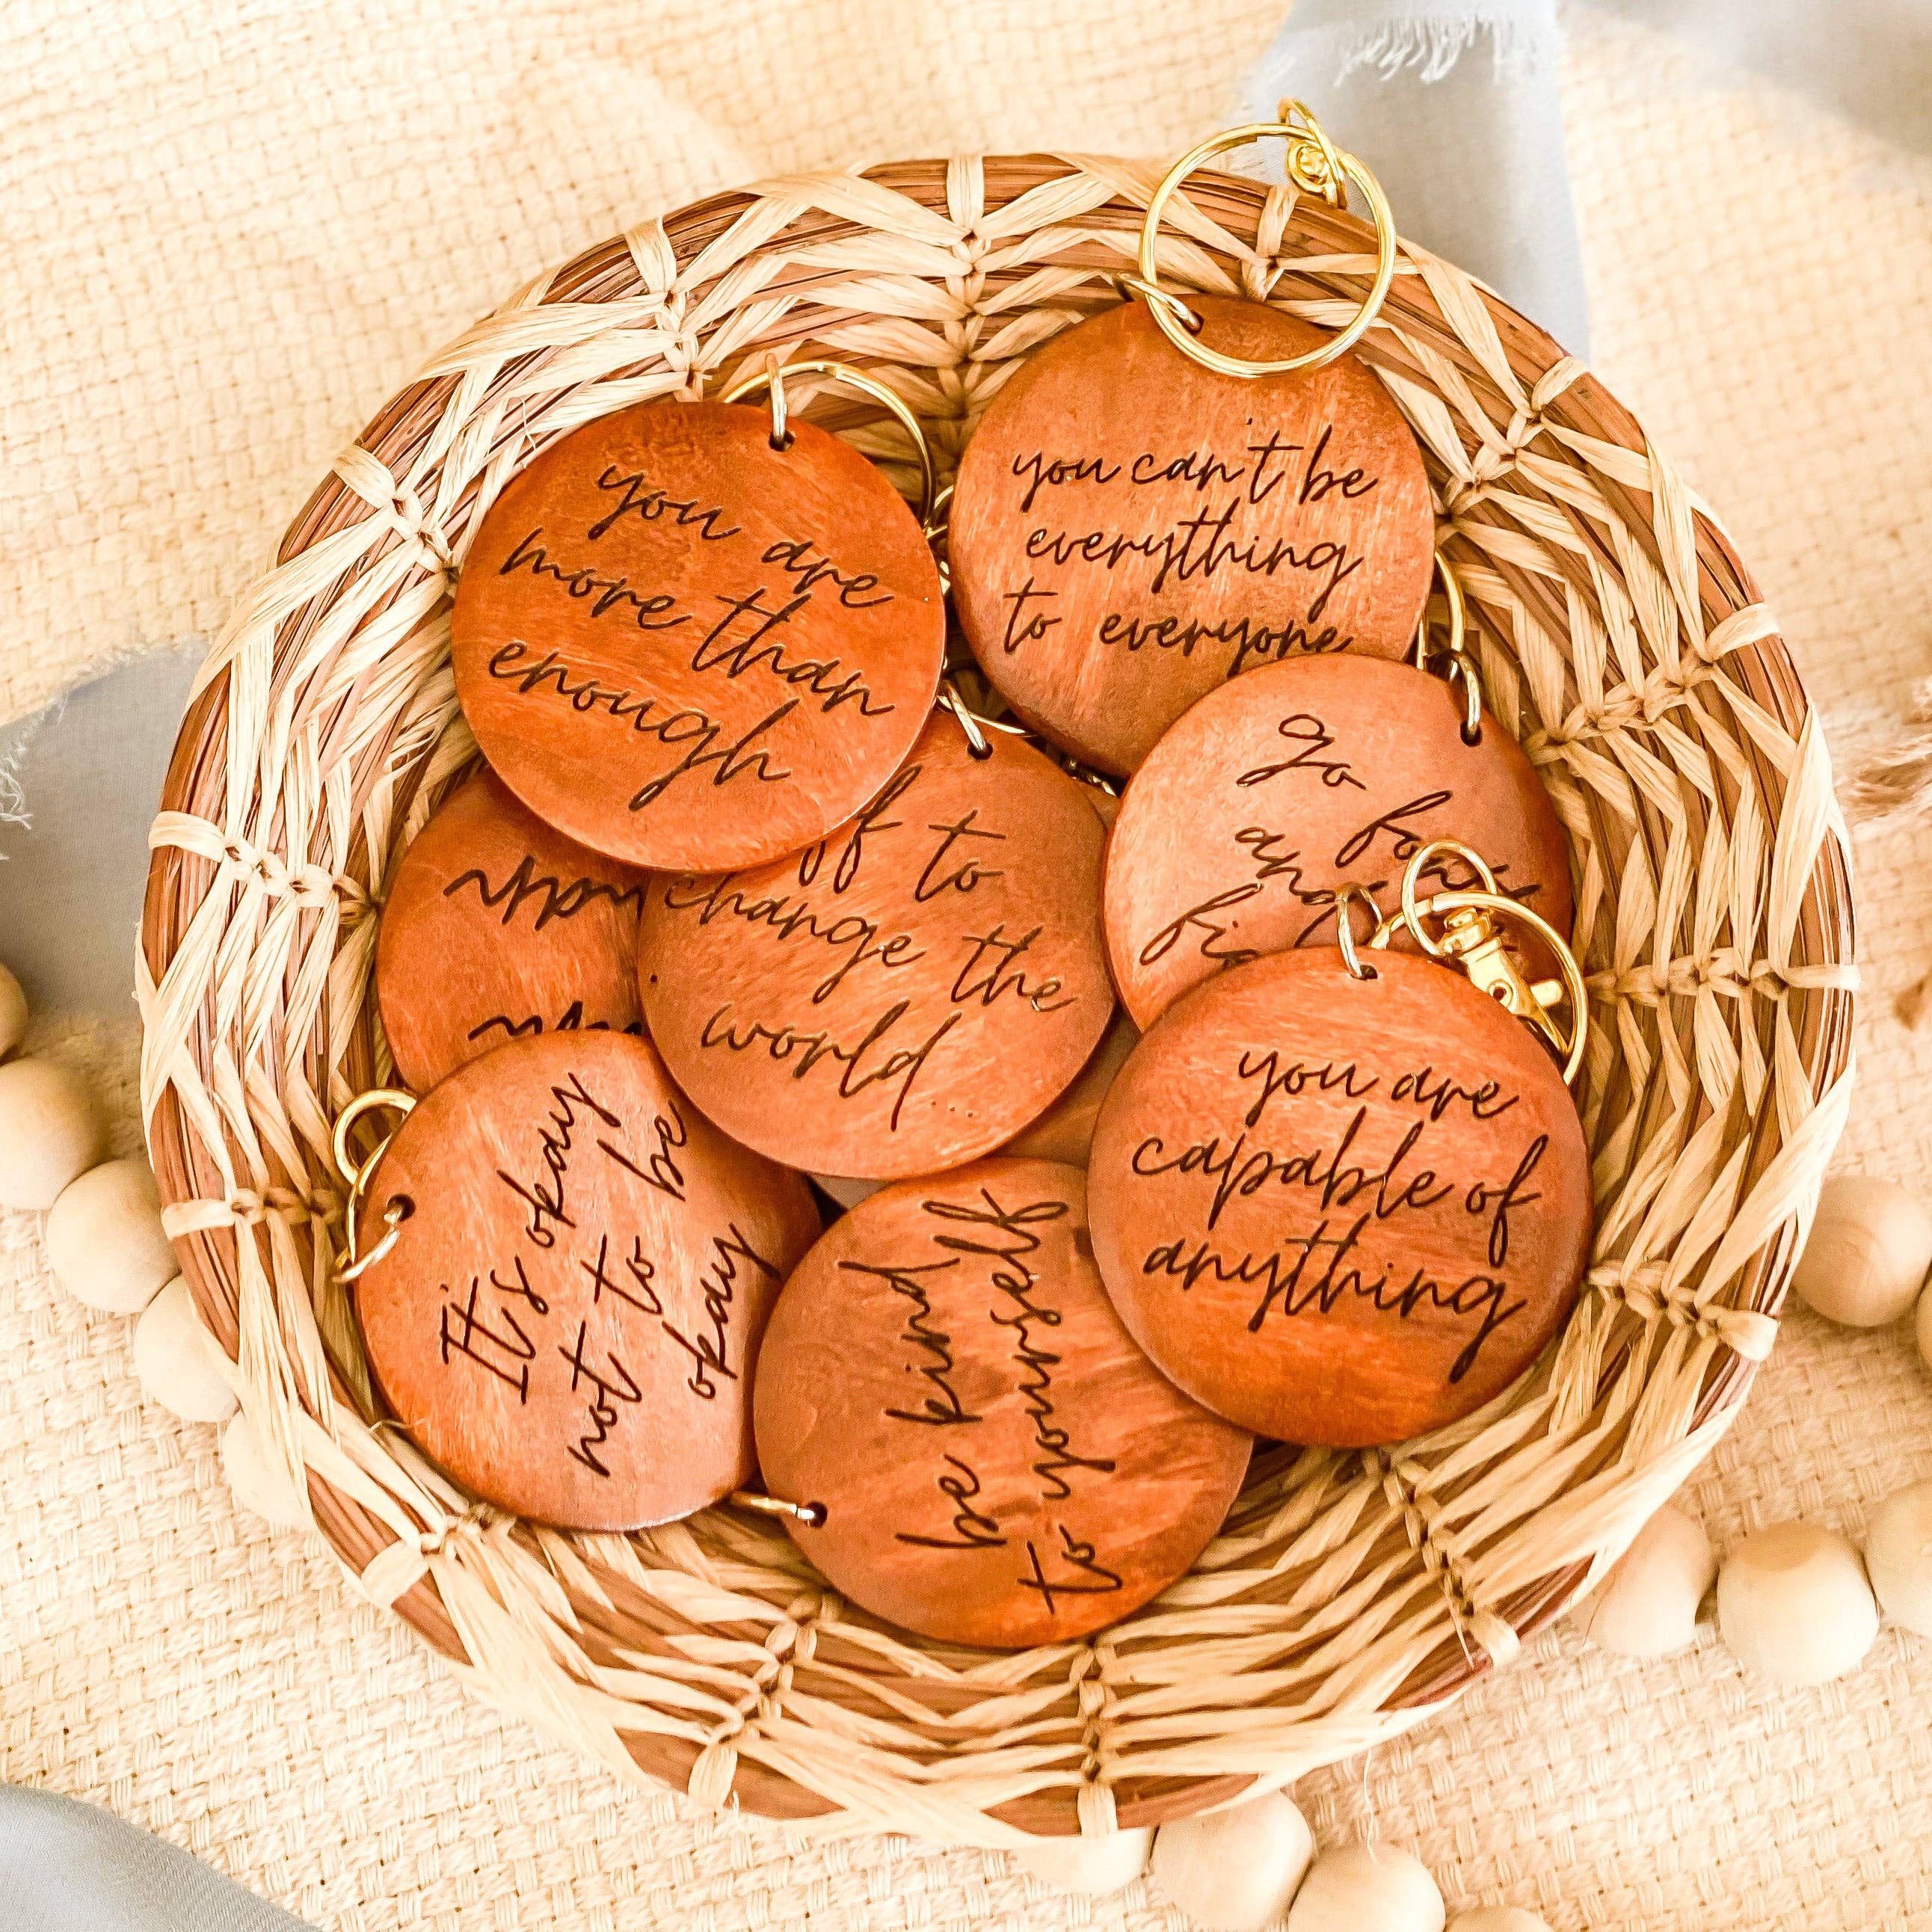 you are
more than
enough
you can't be
everything
to everyone
go
and
off to
change the
world
you are
capable of
anything
It's okay
not to be
okay
be kind
to yourself